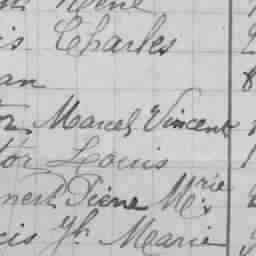 René
is Charles
an
or Marcel Vincent
tor Louis
nest Pierre Mrie
cis Jh Marie